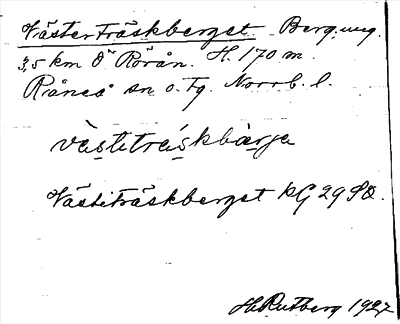 Västerträskberget. Berg, ung.
3,5 km Ö Rörån. H. 170 m.
Råneå sn o. tg. Norrb. l.
västiträskbärje
Västiträskberget kG 29 SO.
H. Rutberg 1927